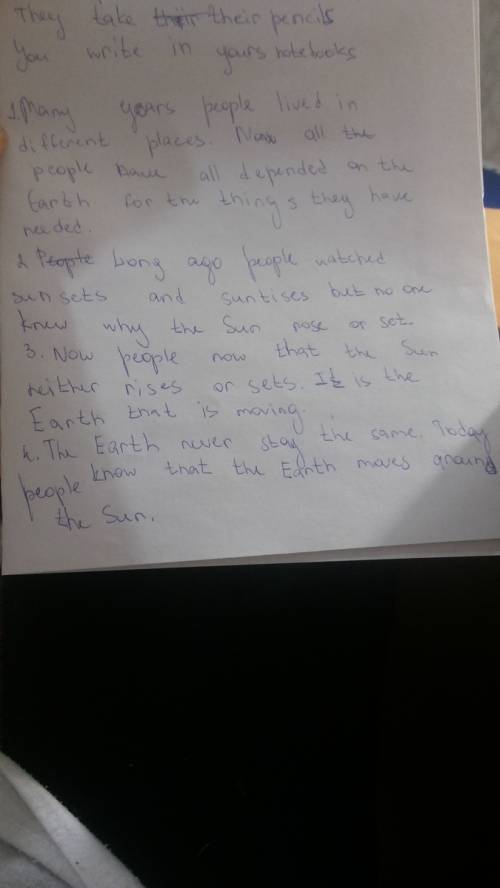 They take their their pencils
You write in yours notebooks
1. Many years people lived in
different places. Now all the
people have all depended on the
Earth for the things they have
needed.
2. People Long ago people watched
sunsets and sunrises but no one
knew why the Sun rose or set.
3. Now people now that the Sun
neither rises or sets. It is the
Earth that is moving.
4. The Earth never stay the same. Today
people know that the Earth moves around
the Sun.